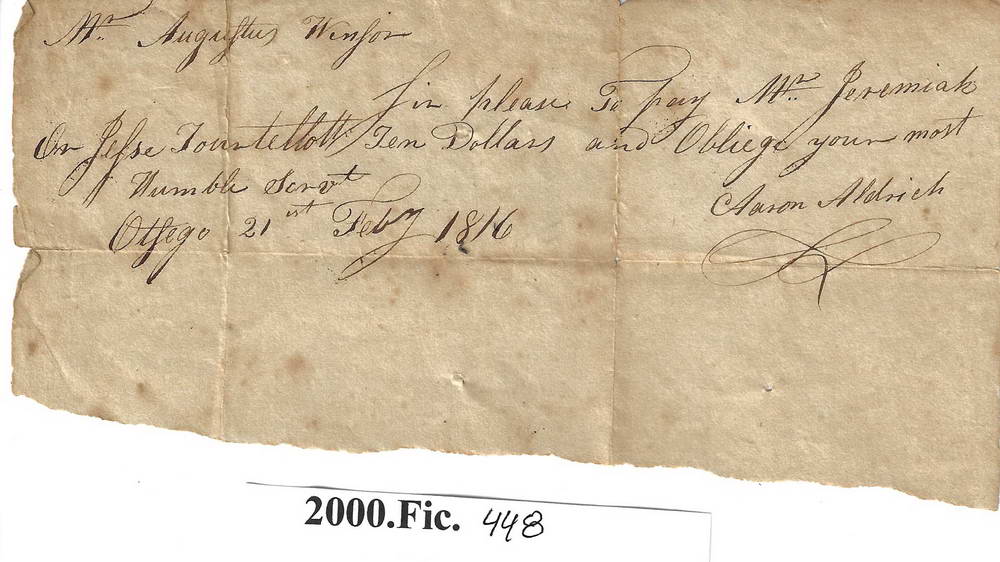 Mr. Augustus Winsor
Sir please To pay Mr. Jeremiah
Or Jesse Tourtellott Ten Dollars and Obliege your most
Humble Servt
Aaron Aldrich
Otsego 21st Feby 1816
2000.Fic. 448